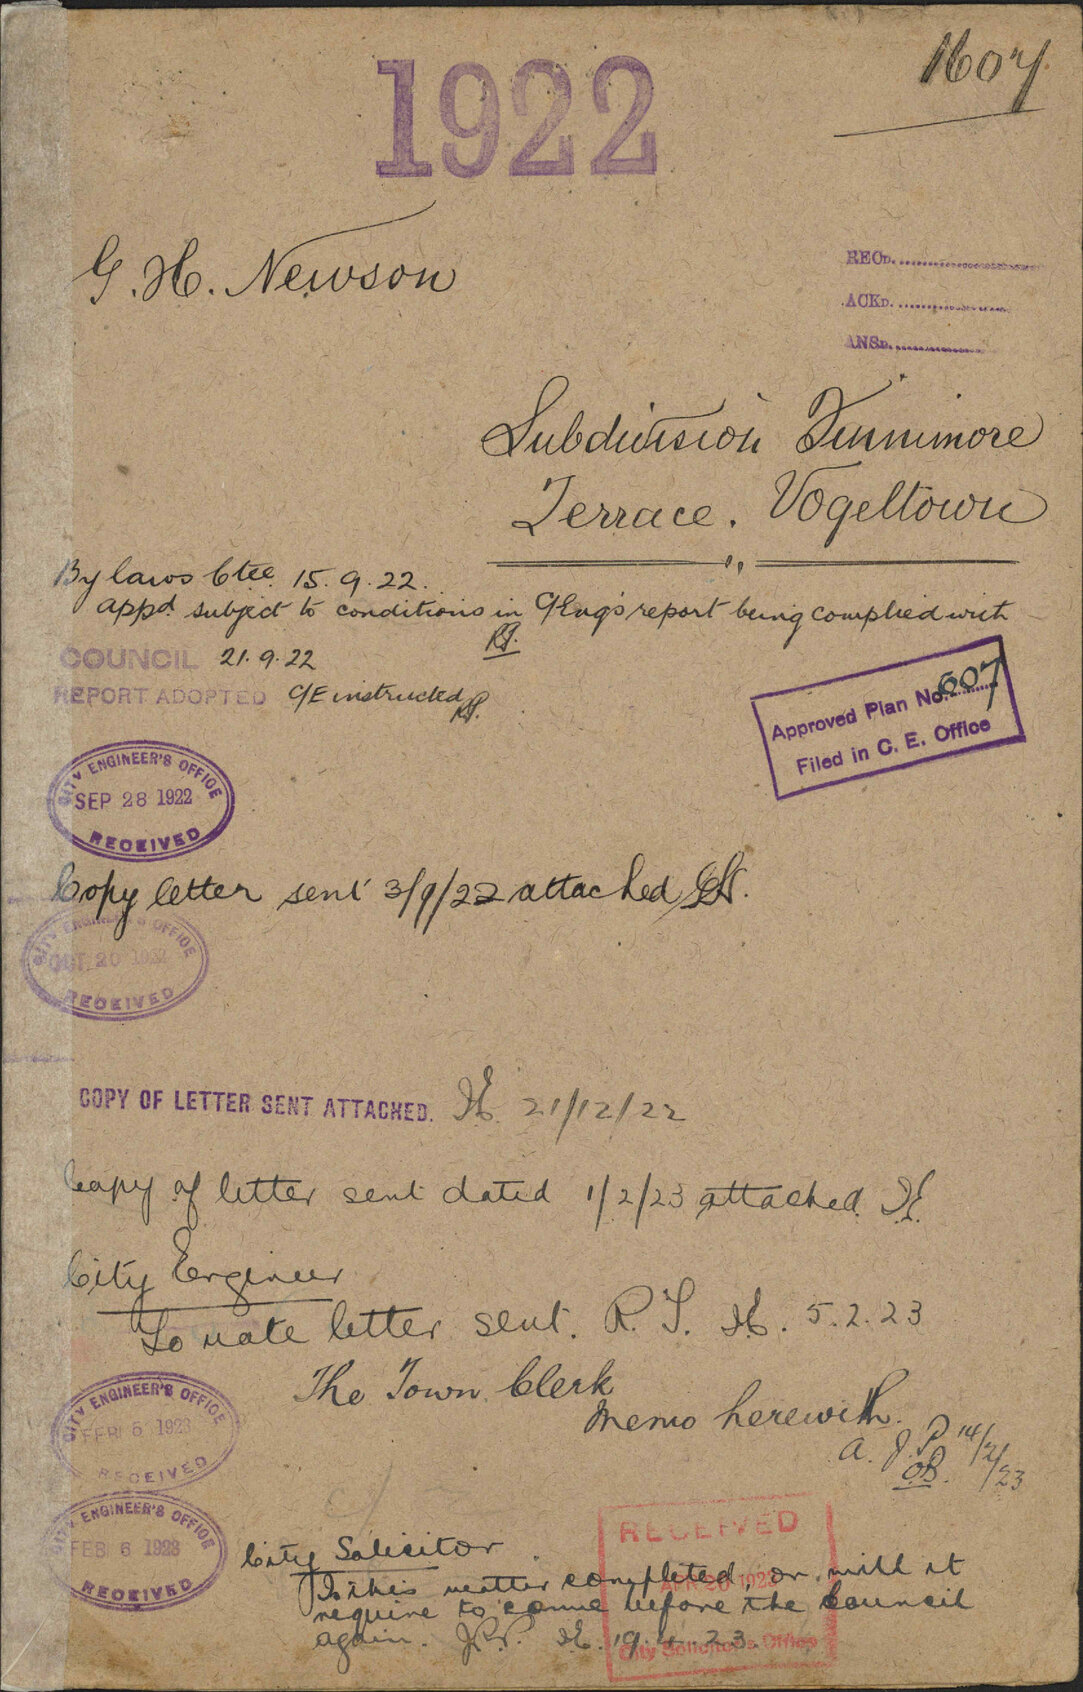 1607
1922
G. H. Newson
RECD.
ACKD.
ANSD.
Subdivision Finnimore
Terrace. Vogeltown
By laws Ctee 15.9.22.
appd subject to conditions in C/Eng's report being complied with
COUNCIL 21.9.22
REPORT ADOPTED C/E instructed
Approved Plan No. 607
Filed in C. E. Office
CITY ENGINEER'S OFFICE
SEP 28 1922
RECEIVED
Copy letter sent 3/9/22 attached
CITY ENGINEER'S OFFICE
OCT 20 1922
RECEIVED
COPY OF LETTER SENT ATTACHED. H. 21/12/22
Copy of letter sent dated 1/2/23 attached. H.
City Engineer
To note letter sent. R. T. H. 5.2.23
The Town Clerk
Memo herewith.
A. J. P. 14/2/23
CITY ENGINEER'S OFFICE
FEB 6 1923
RECEIVED
CITY ENGINEER'S OFFICE
FEB 6 1923
RECEIVED
RECEIVED
APR 20 1923
City Solicitor's Office
City Solicitor
Is this matter completed, or will it
require to come before the Council
again. H. 19.4.23.